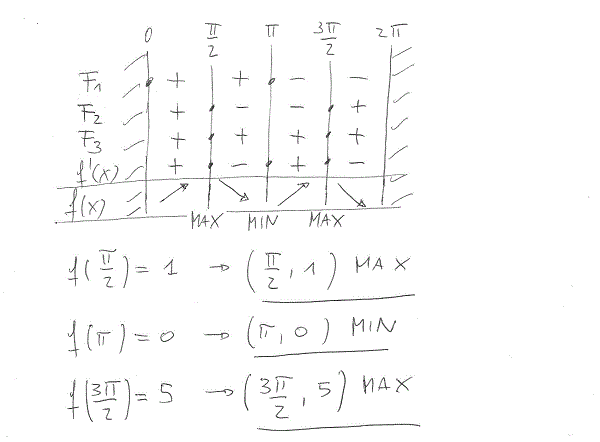 0 π/2 π 3π/2 2π
F₁ + + − −
F₂ + − − +
F₃ + + + +
f'(x) + − + −
f(x) ↗ ↘ ↗ ↘
MAX MIN MAX
f(π/2) = 1 → (π/2, 1) MAX
f(π) = 0 → (π, 0) MIN
f(3π/2) = 5 → (3π/2, 5) MAX